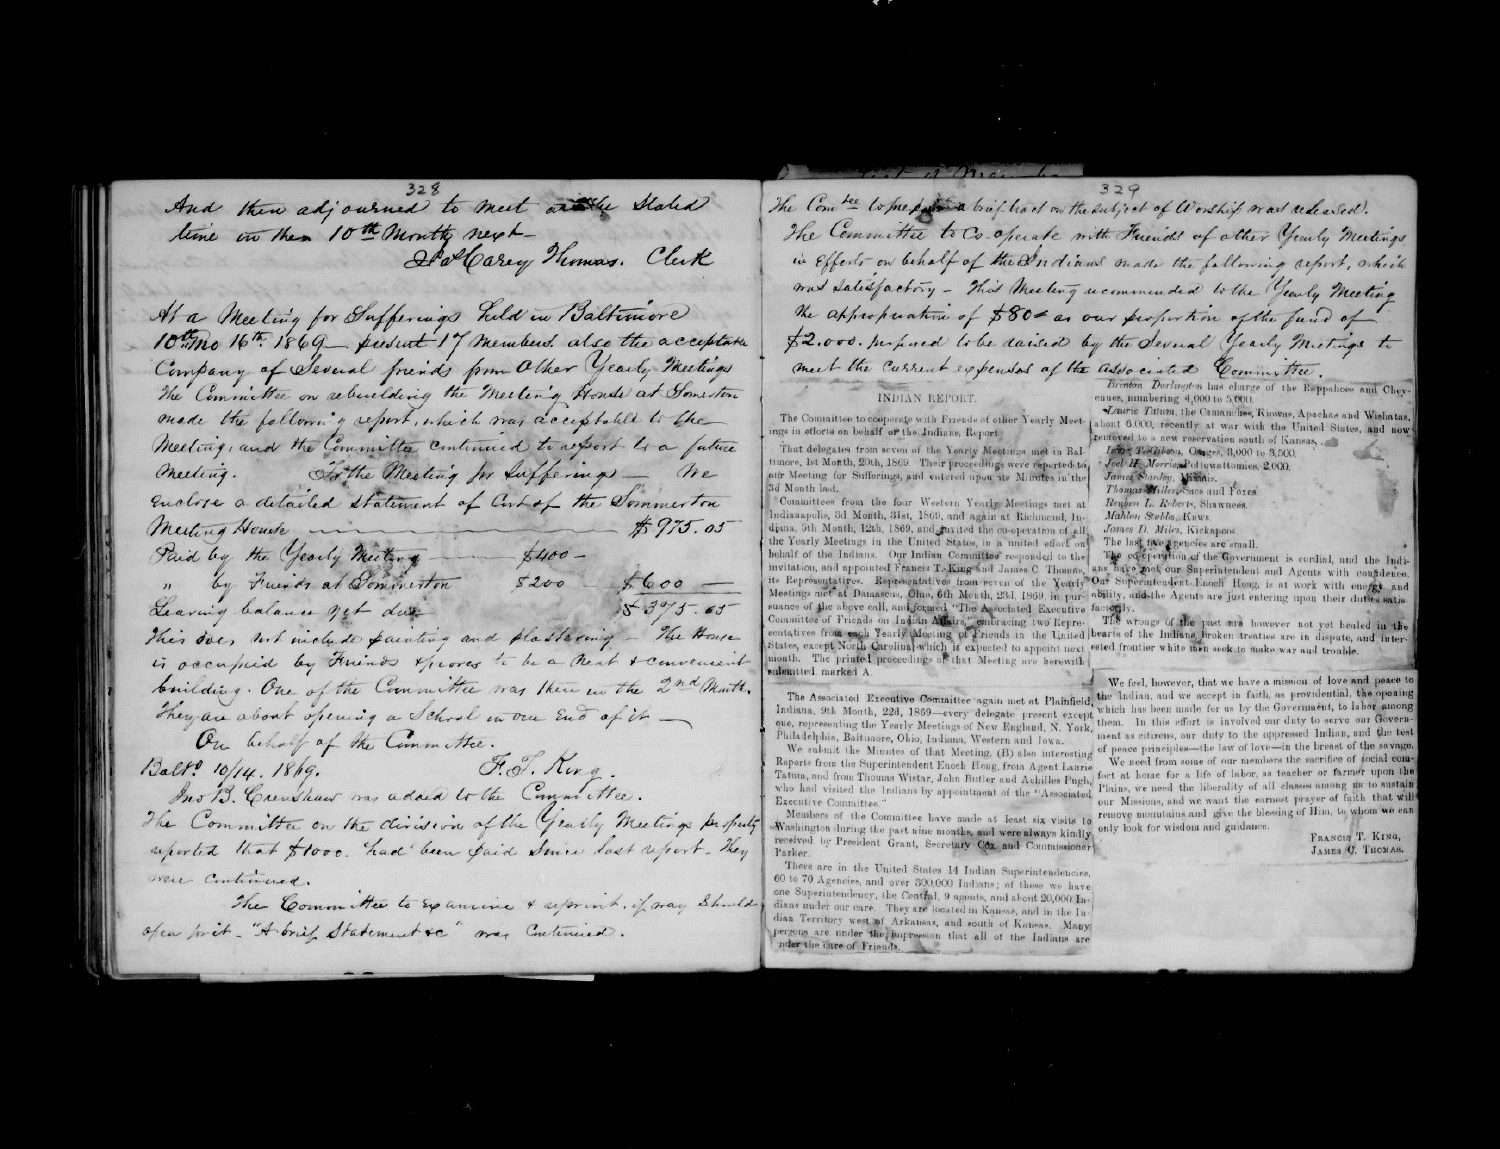 328
And then adjourned to meet at the Stated
time in the 10th Month next —
Jas Carey Thomas. Clerk
At a Meeting for Sufferings held in Baltimore
10th Mo 16th 1869 — present 17 members also the acceptable
Company of Several friends from other Yearly Meetings
The Committee on rebuilding the Meeting House at Somerton
made the following report, which was acceptable to the
Meeting, and the Committee continued to report to a future
Meeting. To the Meeting for Sufferings — We
enclose a detailed statement of Cost of the Sommerton
Meeting House — $975.05
Paid by the Yearly Meeting — $400 —
" by Friends at Sommerton $200 $600 —
Leaving balance yet due $375.05
This does not include painting and plastering — The House
is occupied by Friends & proves to be a neat & convenient
building. One of the Committee was there in the 2nd Month.
They are about opening a School in one End of it —
On behalf of the Committee.
Balto 10/14. 1869. F. T. King.
Jno B. Crenshaw was added to the Committee.
The Committee on the division of the Yearly Meetings property
reported that $1000. had been paid since last report. They
were continued.
The Committee to examine & reprint, if way should
open for it — "A brief Statement &c" was Continued.
329
The Comtee to prepare a brief tract on the subject of Worship was released.
The Committee to Co-operate with Friends of other Yearly Meetings
in efforts on behalf of the Indians made the following report, which
was satisfactory — This Meeting recommended to the Yearly Meeting
the appropriation of $80 as our proportion of the fund of
$2.000. proposed to be raised by the Several Yearly Meetings to
meet the current expenses of the associated Committee.
INDIAN REPORT.
The Committee to cooperate with Friends of other Yearly Meet-
ings in efforts on behalf of the Indians, Report
That delegates from seven of the Yearly Meetings met in Bal-
timore, 1st Month, 29th, 1869. Their proceedings were reported to
our Meeting for Sufferings, and entered upon its Minutes in the
3d Month last.
Committees from the four Western Yearly Meetings met at
Indianapolis, 3d Month, 31st, 1869, and again at Richmond, In-
diana, 5th Month, 12th, 1869, and invited the co-operation of all
the Yearly Meetings in the United States, in a united effort on
behalf of the Indians. Our Indian Committee responded to the
invitation, and appointed Francis T. King and James C. Thomas,
its Representatives. Representatives from seven of the Yearly
Meetings met at Damascus, Ohio, 6th Month, 23d, 1869, in pur-
suance of the above call, and formed "The Associated Executive
Committee of Friends on Indian Affairs," embracing two Repre-
sentatives from each Yearly Meeting of Friends in the United
States, except North Carolina, which is expected to appoint next
month. The printed proceedings of that Meeting are herewith
submitted, marked A.
The Associated Executive Committee again met at Plainfield,
Indiana, 9th Month, 22d, 1869—every delegate present except
one, representing the Yearly Meetings of New England, N. York,
Philadelphia, Baltimore, Ohio, Indiana, Western and Iowa.
We submit the Minutes of that Meeting, (B) also interesting
Reports from the Superintendent Enoch Hoag, from Agent Laurie
Tatum, and from Thomas Wistar, John Butler and Achilles Pugh,
who had visited the Indians by appointment of the "Associated
Executive Committee."
Members of the Committee have made at least six visits to
Washington during the past nine months, and were always kindly
received by President Grant, Secretary Cox and Commissioner
Parker.
There are in the United States 14 Indian Superintendencies,
60 to 70 Agencies, and over 300,000 Indians; of these we have
one Superintendency, the Central, 9 agents, and about 20,000 In-
dians under our care. They are located in Kansas, and in the In-
dian Territory west of Arkansas, and south of Kansas. Many
persons are under the impression that all of the Indians are
under the care of Friends.
Brinton Darlington has charge of the Rappahoes and Chey-
ennes, numbering 4,000 to 5,000.
Laurie Tatum, the Comanches, Kiowas, Apachas and Wishatas,
about 6,000, recently at war with the United States, and now
removed to a new reservation south of Kansas.
Isaac T. Gibson, Osages, 3,000 to 3,500.
Joel H. Morris, Pottowattomies, 2,000.
James Stanley, Miamis.
Thomas Miller, Sacs and Foxes
Reuben L. Roberts, Shawnees.
Mahlon Stubbs, Kaws.
James D. Miles, Kickapoos.
The last five agencies are small.
The co-operation of the Government is cordial, and the Indi-
ans have met our Superintendent and Agents with confidence.
Our Superintendent Enoch Hoag, is at work with energy and
ability, and the Agents are just entering upon their duties satis-
factorily.
The wrongs of the past are however not yet healed in the
hearts of the Indians, broken treaties are in dispute, and inter-
ested frontier white men seek to make war and trouble.
We feel, however, that we have a mission of love and peace to
the Indian, and we accept in faith, as providential, the opening
which has been made for us by the Government, to labor among
them. In this effort is involved our duty to serve our Govern-
ment as citizens, our duty to the oppressed Indian, and the test
of peace principles—the law of love—in the breast of the savage.
We need from some of our members the sacrifice of social com-
fort at home for a life of labor, as teacher or farmer upon the
Plains, we need the liberality of all classes among us to sustain
our Missions, and we want the earnest prayer of faith that will
remove mountains and give the blessing of Him, to whom we can
only look for wisdom and guidance.
FRANCIS T. KING,
JAMES C. THOMAS.